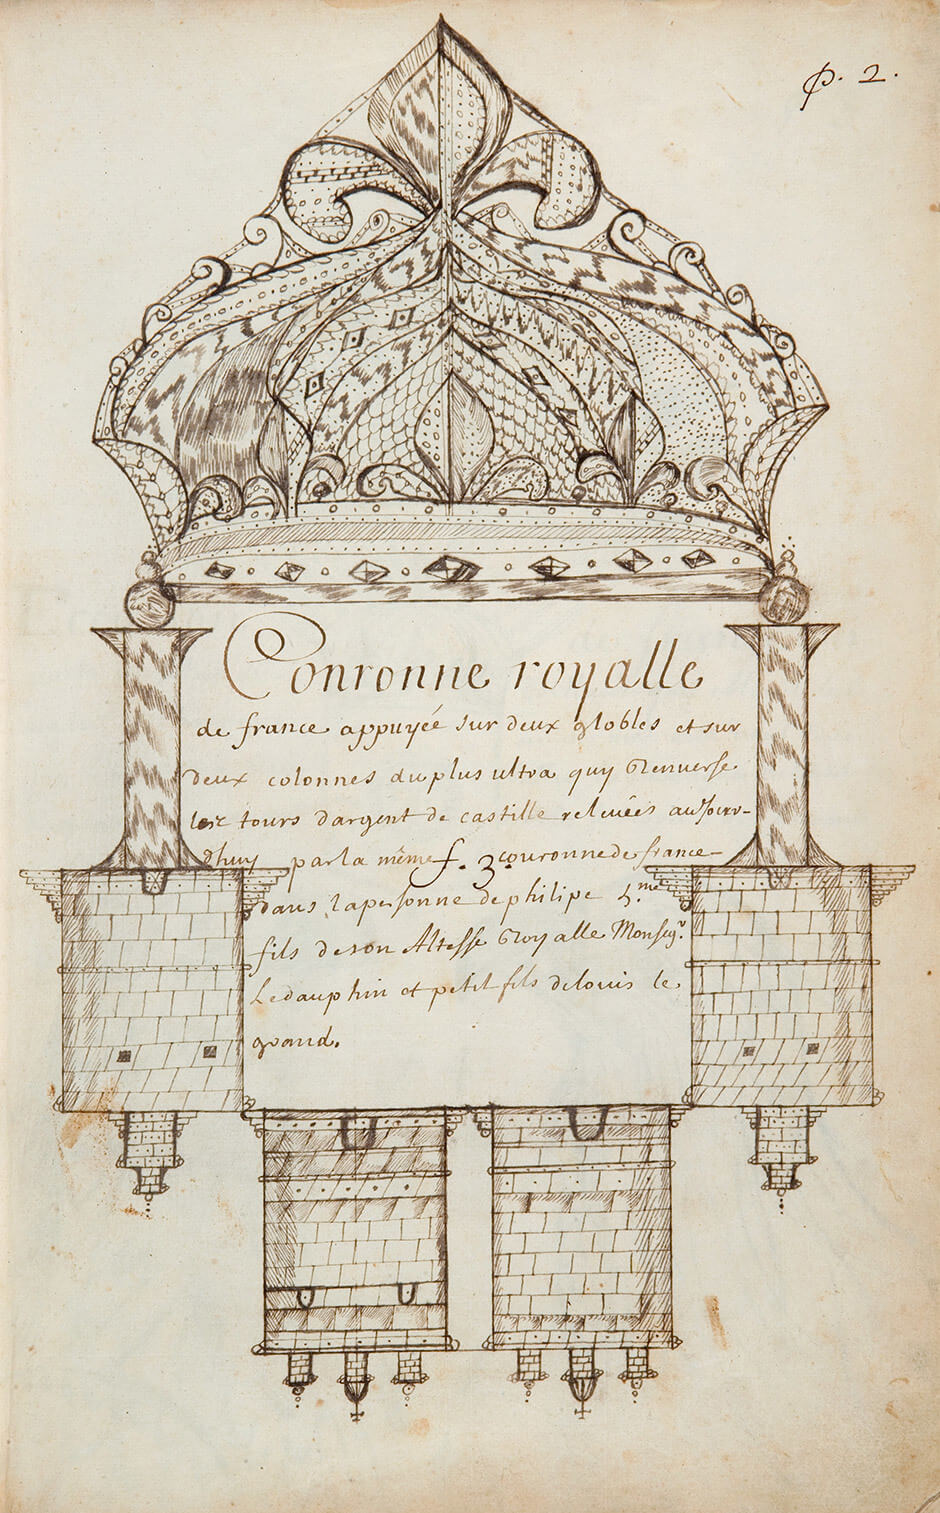 P. 2.
Couronne royalle
de france appuyée sur deux globles et sur
deux colonnes du plus ultra quy Renverse
les tours d'argent de castille relevées aujour-
d'huy par la même f. 3. couronne de france
dans la personne de philipe 5.me
fils de son Altesse Royalle Monseigr.
Le dauphin et petit fils de louis le
grand.